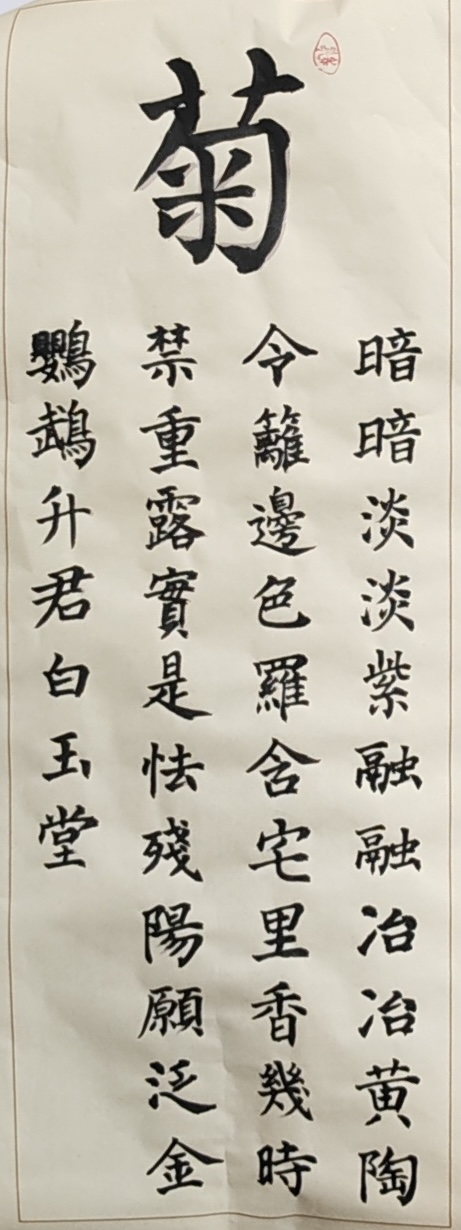 菊
暗暗淡淡紫融融冶冶黄陶
令籬邊色羅含宅里香幾時
禁重露實是怯殘陽願泛金
鸚鵡升君白玉堂